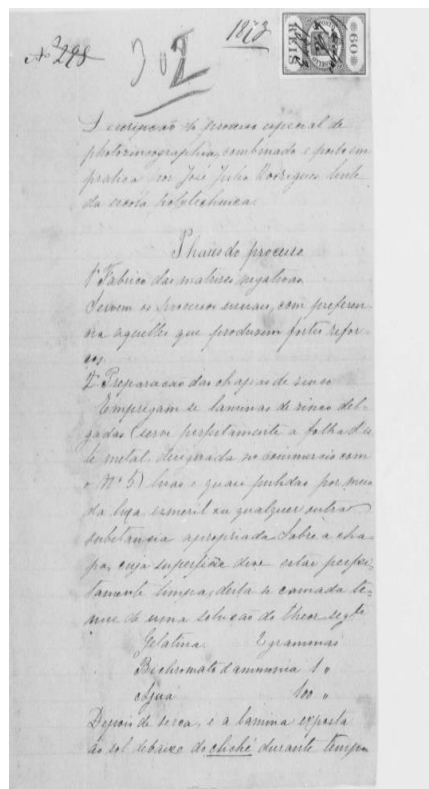 Nº 298
302
1873
60
REIS
Descripção do processo especial de
photozincographia, combinado e posto em
pratica por José Julio Rodrigues, lente
da escola polytechnica.
Phases do processo
1ª Fabrico das matrizes negativas
Servem os processos usuaes, com preferen-
cia aquelles que produsem fortes refor-
ços.
2ª Preparacao das chapas de zinco
Empregam se laminas de zinco del-
gadas (serve perfeitamente a folha d'es-
te metal, designada no commercio com
o Nº 5) lisas e quasi pulidas por meio
da lixa, esmeril ou qualquer outra
substancia apropriada. Sobre a cha-
pa, cuja superficie deve estar perfei-
tamente limpa, deita se camada te-
nue de uma solução do theor segte
Gelatina 2 grammas
Bichromato d'ammonia 1 "
Agua 100 "
Depois de secca, e a lamina exposta
ao sol debaixo do cliché durante tempo